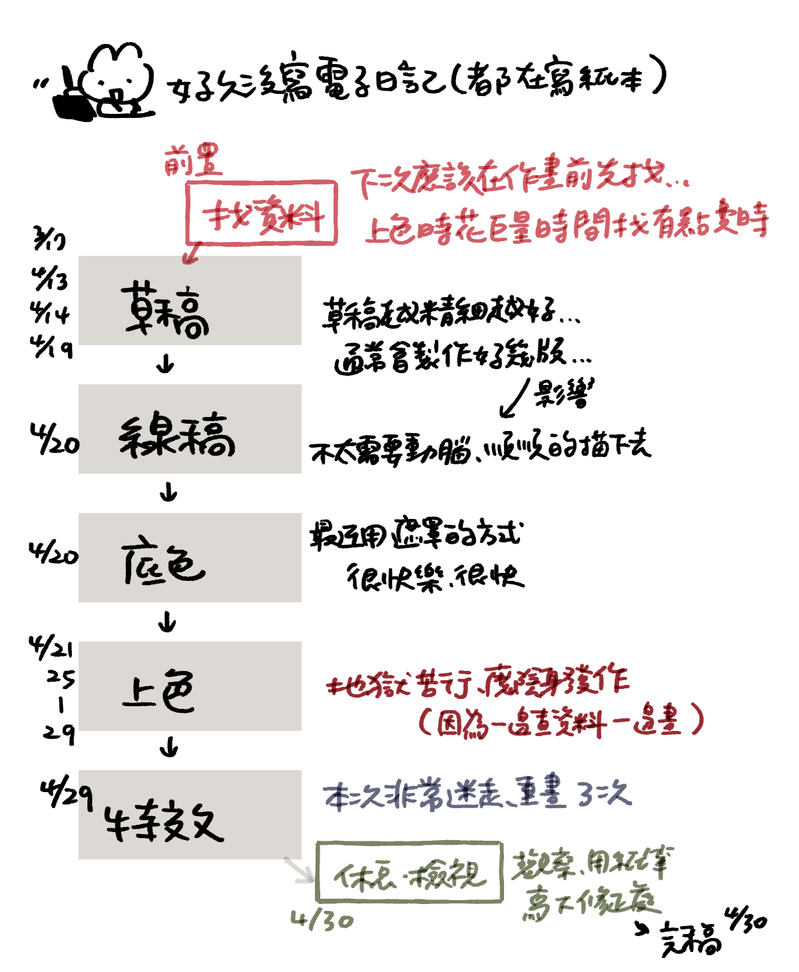 好久沒寫電子日記(都在寫紙本)
前置
找資料
下次應該在作畫前先找...
上色時花巨量時間找有點費時
4/13
4/14
4/19
草稿
草稿越精細越好...
通常會製作好幾版...
影響
4/20
線稿
不太需要動腦、順順的描下去
4/20
底色
最近用遮罩的方式
很快樂、很快
4/21
25
29
上色
地獄苦行、
發作
(因為一邊查資料一邊畫)
4/29
特效
本次非常迷走、重畫3次
休息・檢視
4/30
觀察、用紙筆
寫下修正處
完稿 4/30